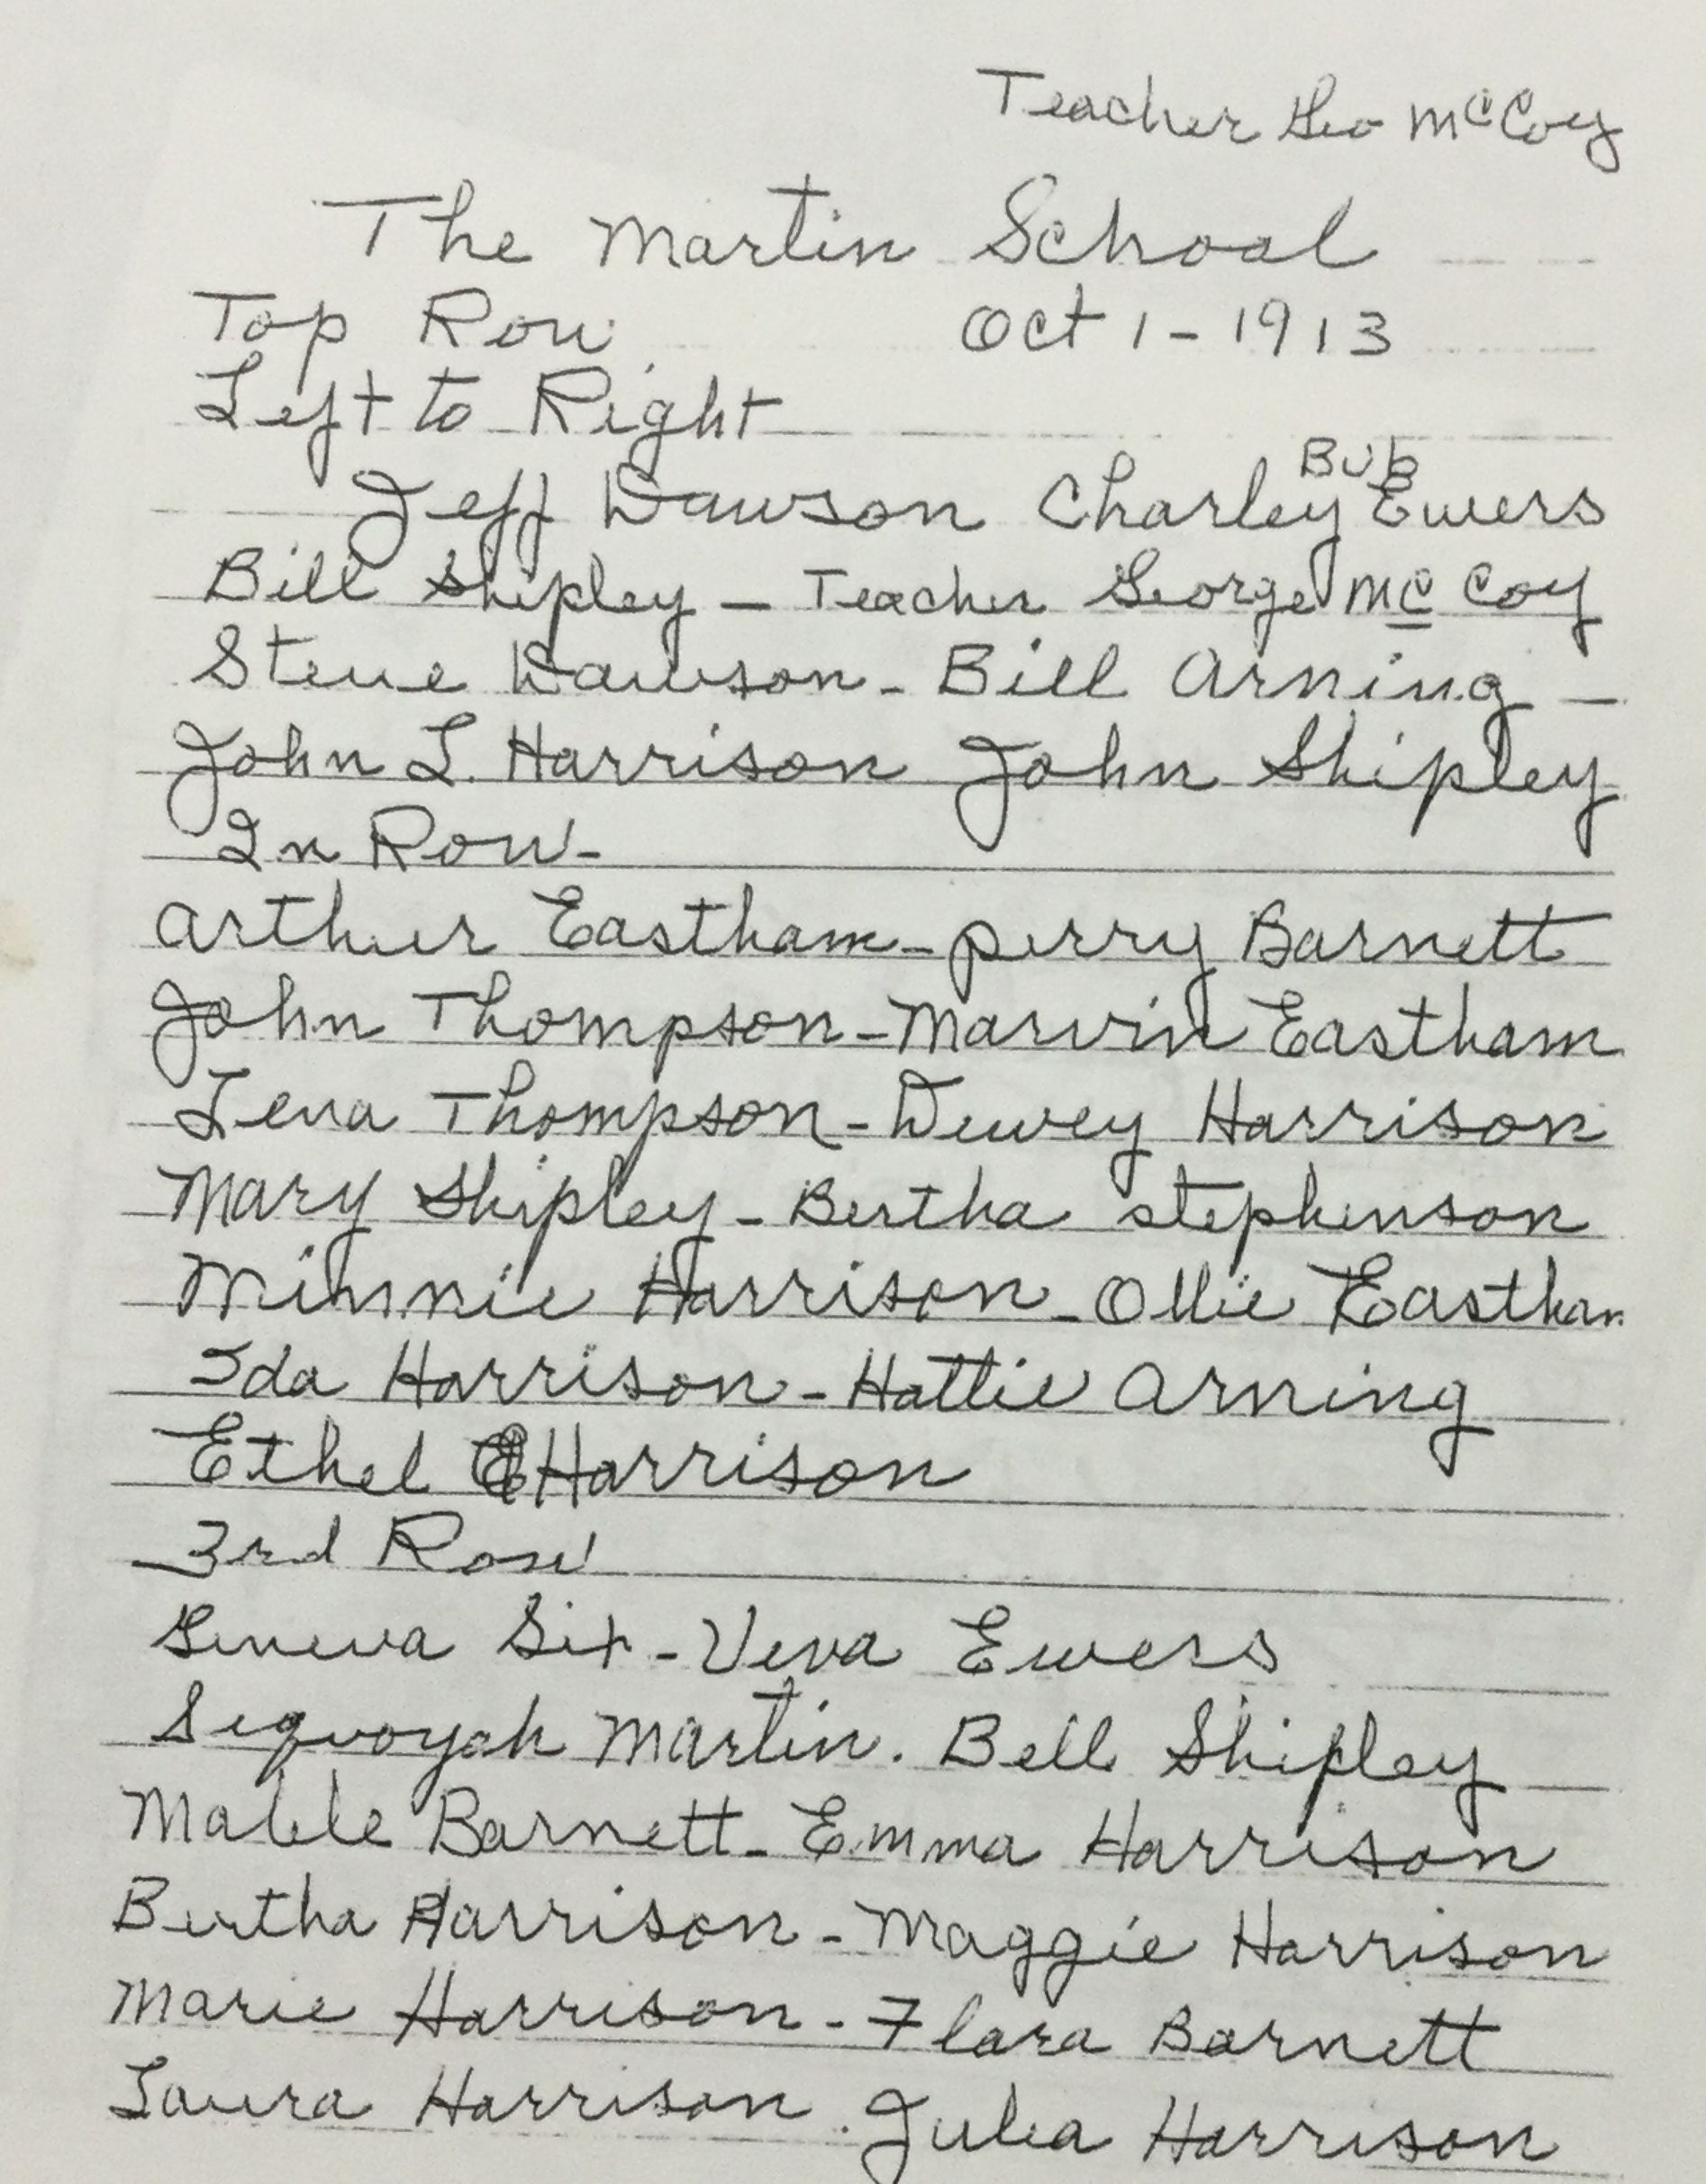 Teacher Geo McCoy
The Martin School
Top Row Oct 1-1913
Left to Right
Bub
Jeff Dawson Charley Ewers
Bill Shipley - Teacher George McCoy
Steve Dawson - Bill Arning -
John L. Harrison John Shipley
2n Row -
Arthur Eastham - Perry Barnett
John Thompson - Marvin Eastham
Lena Thompson - Dewey Harrison
Mary Shipley - Bertha Stephenson
Minnie Harrison - Ollie Eastham
Ida Harrison - Hattie Arning
Ethel Harrison
3rd Row
Geneva Six - Veva Ewers
Sequoyah Martin. Bell Shipley
Mable Barnett - Emma Harrison
Bertha Harrison - Maggie Harrison
Marie Harrison - Flora Barnett
Laura Harrison. Julia Harrison